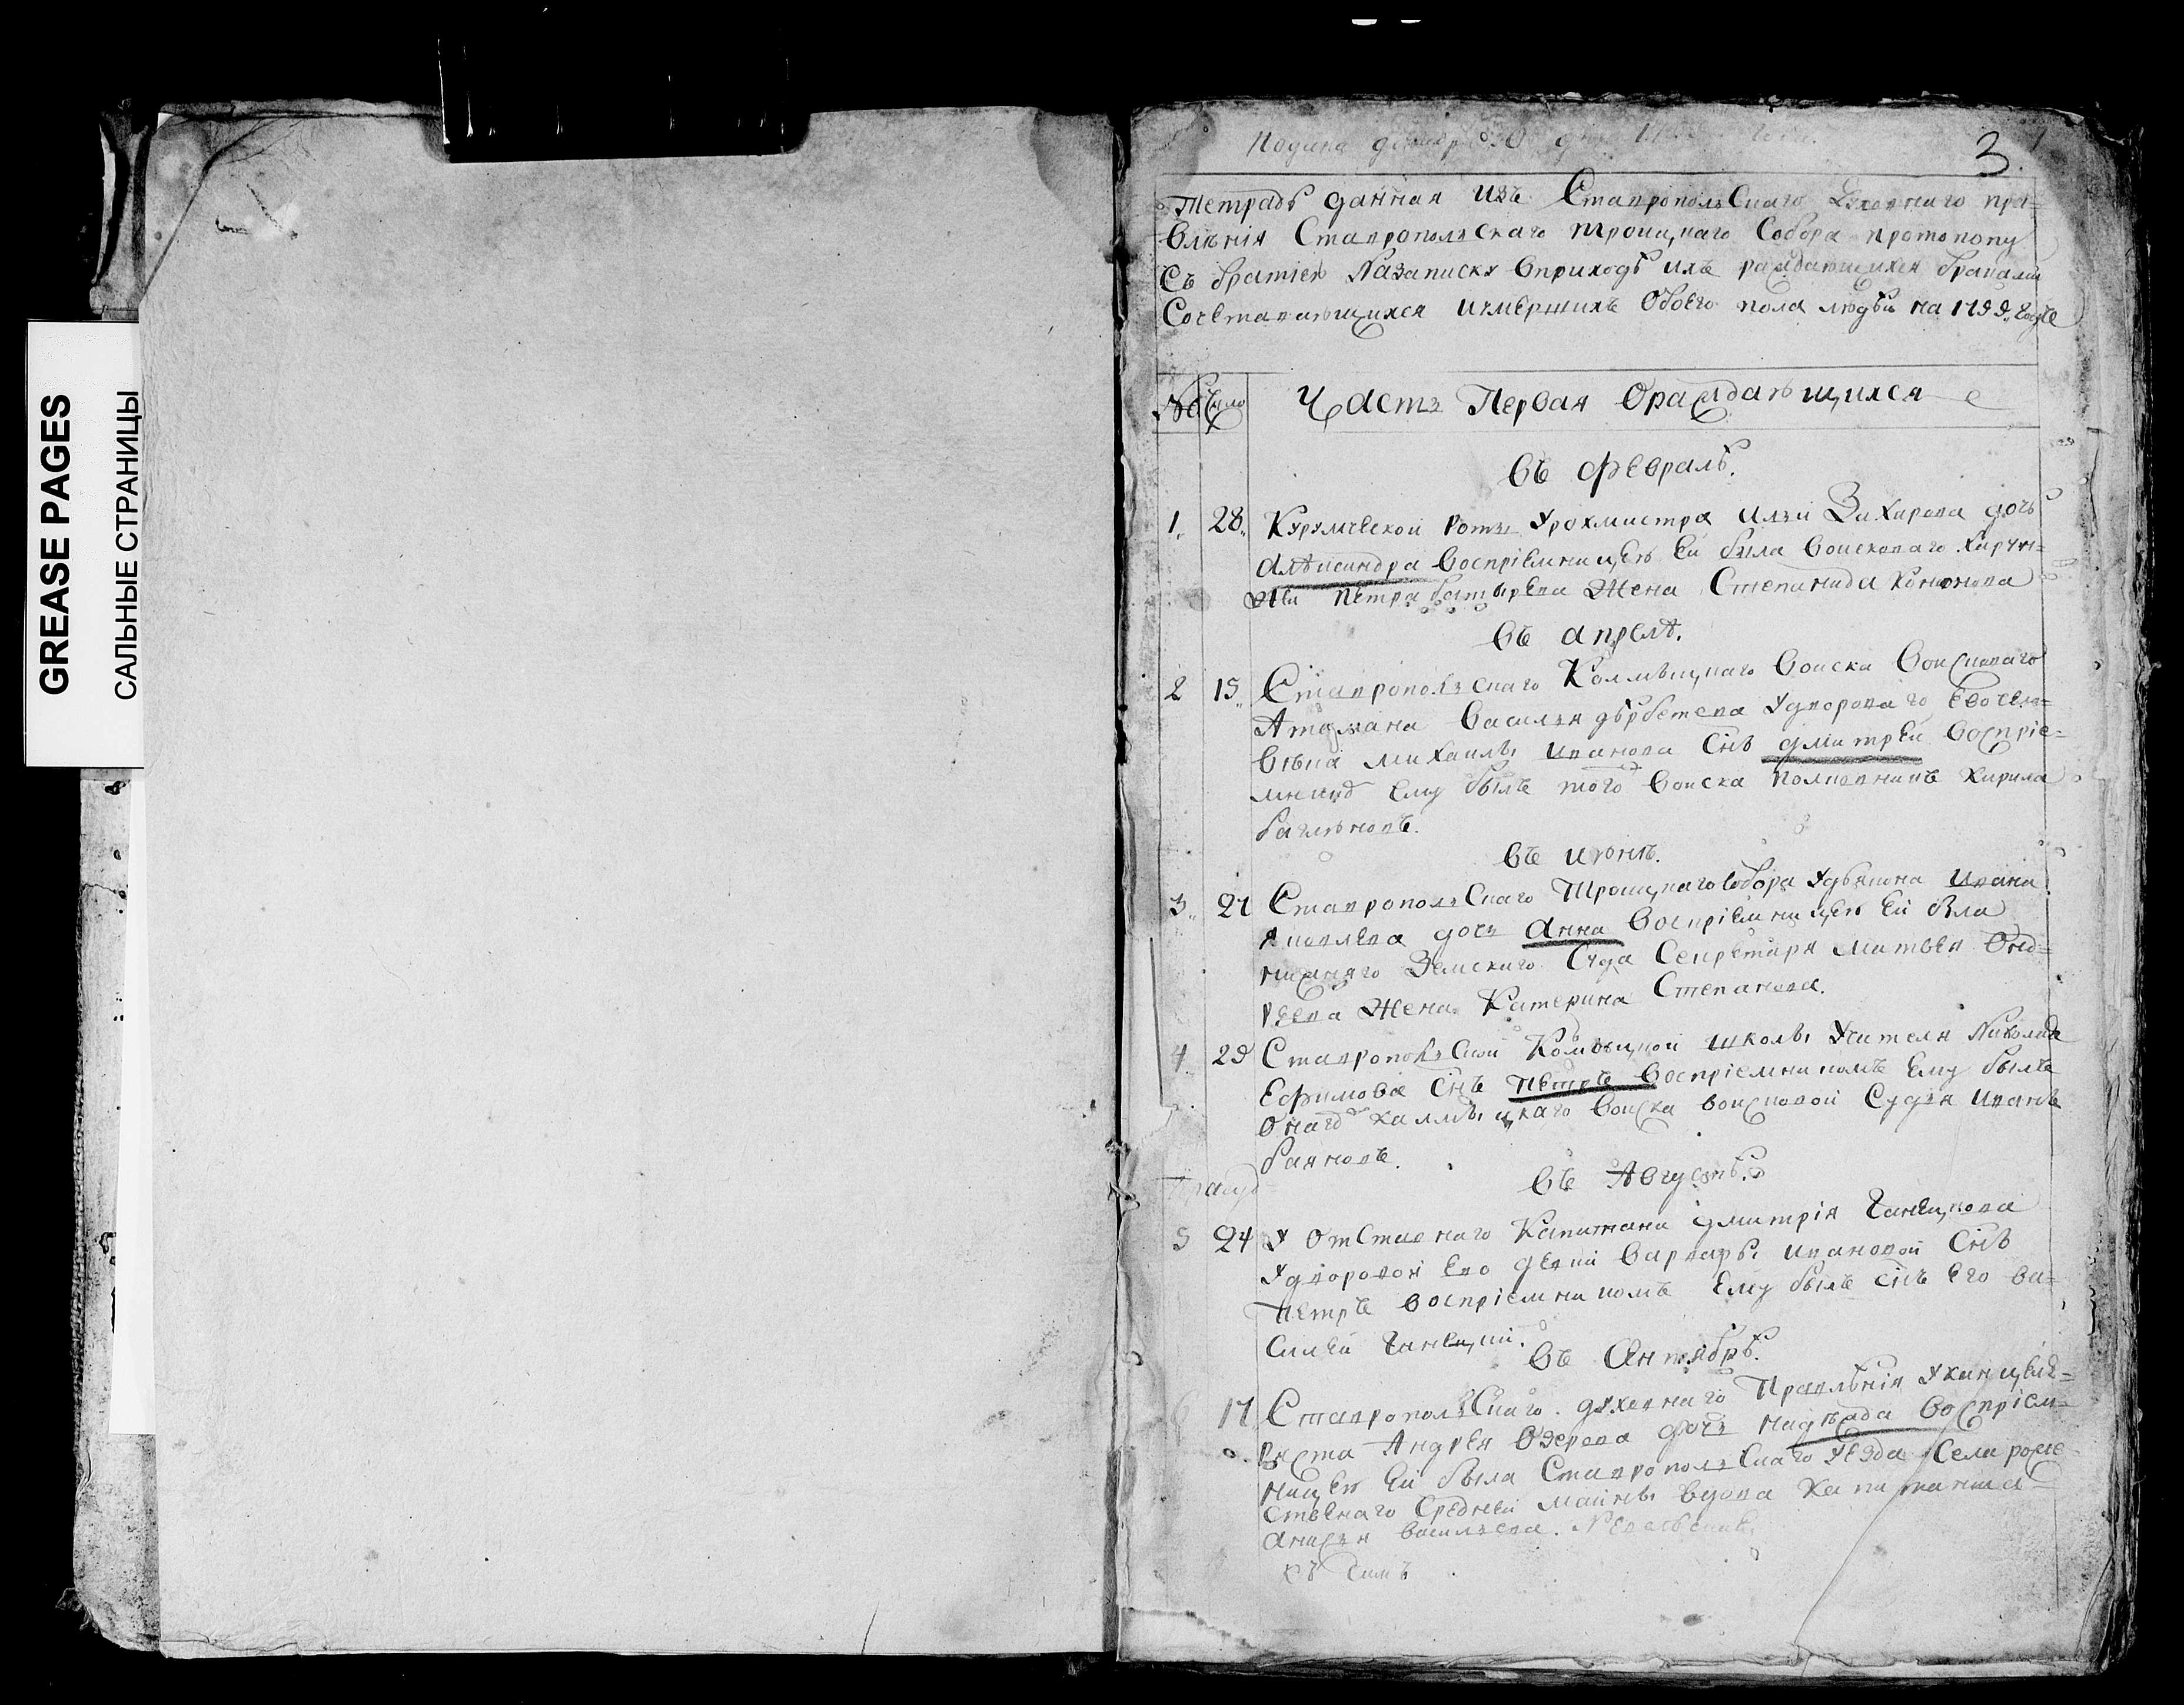 GREASE PAGES
САЛЬНЫЕ СТРАНИЦЫ
3.
Тетрадь данная изъ Ставропольскаго духовнаго пра=
вленія Ставропольскаго троицкаго Собора протопопу
Съ братиею Назаписку вприходѣ ихъ раждающихся бракамъ
Сочетавающихся иумершихъ Обоего пола людѣй на 1799. годъ
№ Число Часть Первая Ораждающихся
Въ февралѣ.
1. 28. Курумчевской Роты Урохмистра Ильи Захарова дочь
Александра Восприемницею Ей была Воисковаго Хорун=
жева Петра Батырева Жена Степанида Кононова
Въ апрелѣ.
2 15. Ставропольскаго Калмыцкаго Воиска Воисковаго
Атамана Василья дербетева Удворова го Евочело=
вѣка михаилы иванова Снъ дмитрей Воспріе=
мникъ Ему былъ того воиска полковникъ Кирила
Въ июнѣ.
3. 21 Ставропольскаго Троицкаго Собора Удьякона ивана
Яковлева дочь Анна Восприемницею Ей была
нижняго Земскаго Суда Секретаря матвея Онд=
реева Жена Катерина Степанова.
4. 29 Ставропольской Калмыцкой школы Учителя Николая
Ефимова Снъ Петръ Воспріемникомъ Ему былъ
Онаго калмыцкаго Воиска воисковой Судья иванъ
Баяновъ.
Въ Августѣ.
5 24 У ОтСтавнаго Капитана дмитрія
Удворовой Ево девки Варвары ивановой Снъ
Петръ воспріемникомъ Ему былъ снъ Его ва=
силей
Въ Октябрѣ.
17 Ставропольскаго духовнаго Правленія Уканцеля=
риста Андрея Озерова дочь надѣжда Воспріем=
ницею Ей была Ставропольскаго уезда Села роже=
ственаго Средней маины вдова капитанша
анисья васильева.